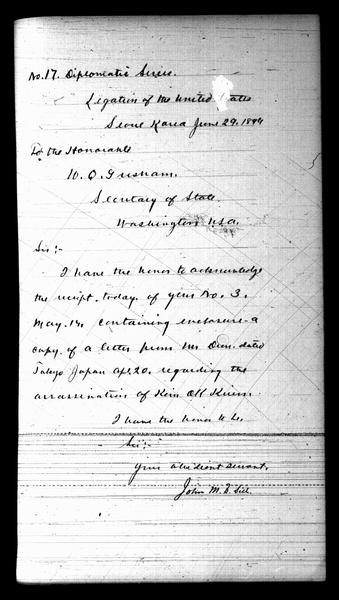 No. 17. Diplomatic Series.
Legation of the United States
Seoul Korea June 29, 1894
To the Honorable
W. Q. Gresham.
Secretary of State.
Washington U.S.A.
Sir;-
I have the honor to acknowledge
the receipt, today, of your No. 3,
May, 14, containing enclosure - a
copy of a letter from Mr Dun, dated
Tokyo Japan Apl. 20, regarding the
assassination of Kim Ok Kiun.
I have the honor to be,
Sir:-
Your obedient servant,
John M. B. Sill.